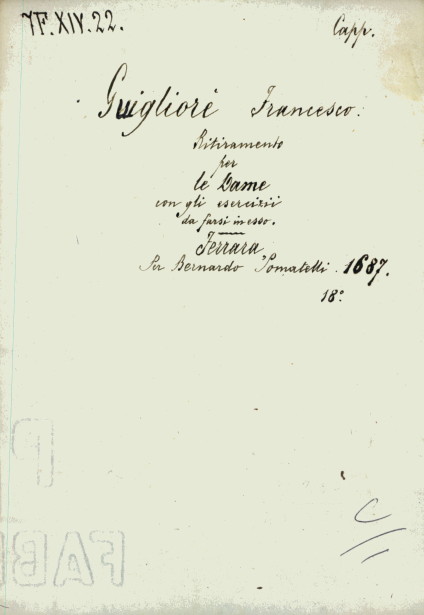 7F.XIV.22.
Capp.
Guiglioré Francesco.
Ritiramento
per
le Dame
con gli esercizii
da farsi in esso.
Ferrara
Per Bernardo Pomatelli. 1687.
18°
C
P
FAB